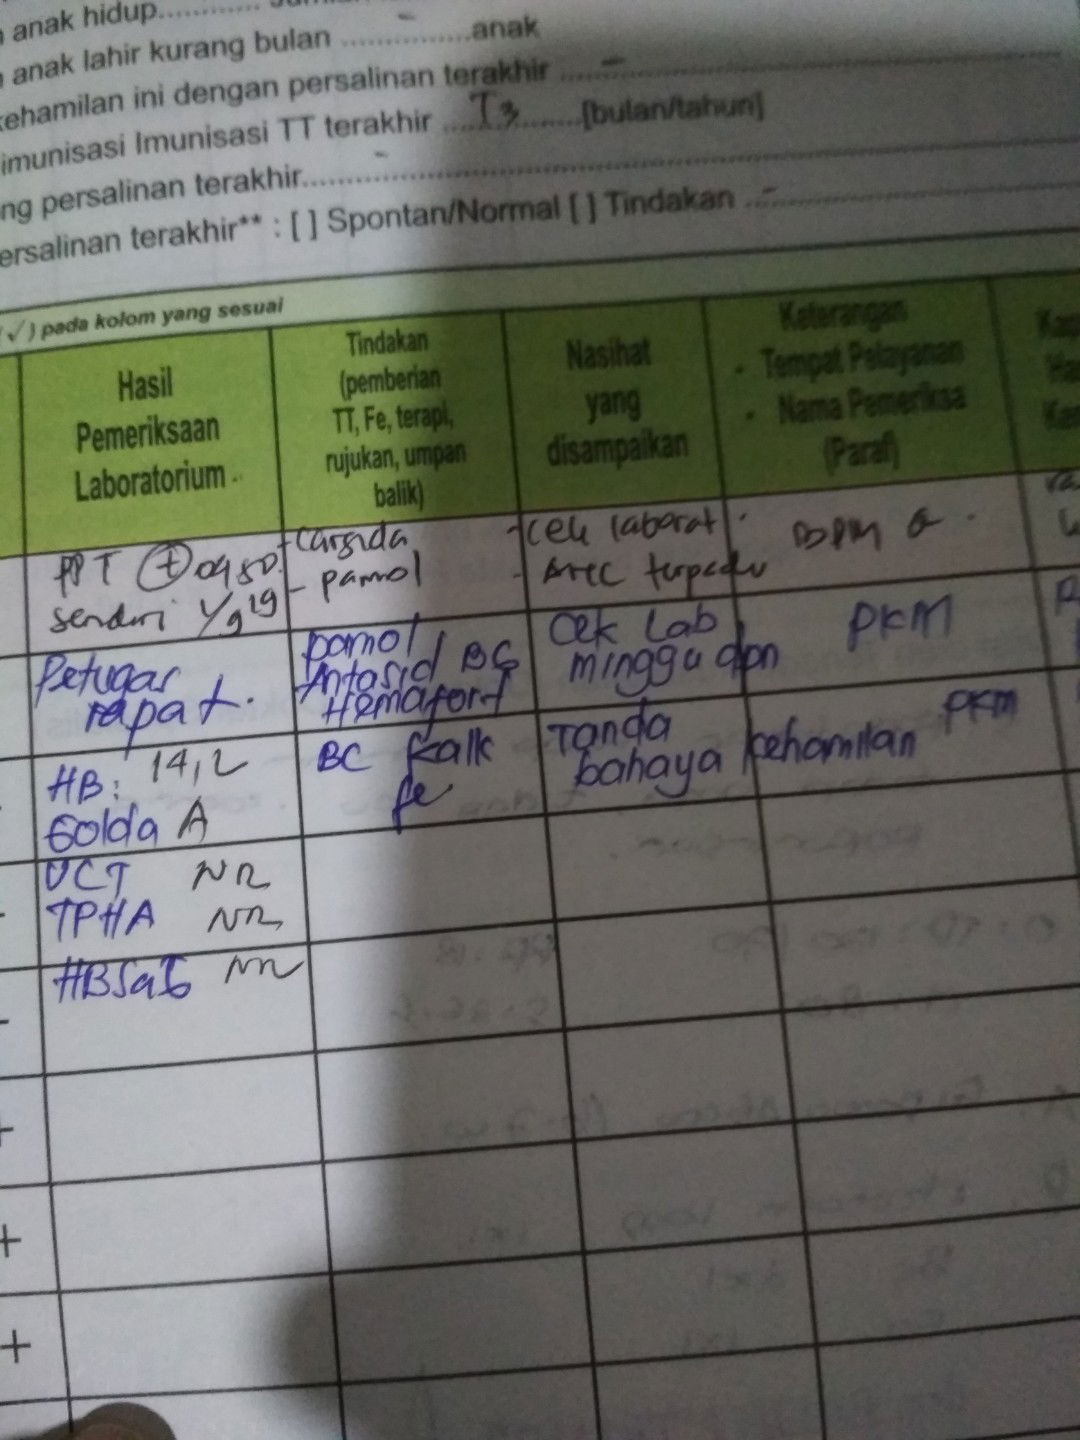 anak hidup............
anak lahir kurang bulan ................anak
kehamilan ini dengan persalinan terakhir
imunisasi Imunisasi TT terakhir ....T3........[bulan/tahun]
ng persalinan terakhir
ersalinan terakhir** : [ ] Spontan/Normal [ ] Tindakan
(√) pada kolom yang sesuai
Hasil
Pemeriksaan
Laboratorium
Tindakan
(pemberian
TT, Fe, terapi,
rujukan, umpan
balik)
Nasihat
yang
disampaikan
Keterangan
- Tempat Pelayanan
- Nama Pemeriksa
(Paraf)
PPT (+)
sendiri
- pamol
- cek laborat
- ANC terpadu
BPM
Petugas
rapat.
pamol / BC
Antasid
Hemafort
Cek Lab
minggu dpn
PKM
HB: 14,2
Golda A
BC kalk
fe
Tanda
bahaya kehamilan
PKM
VCT NR
TPHA NR
HBSaG NR
+
+